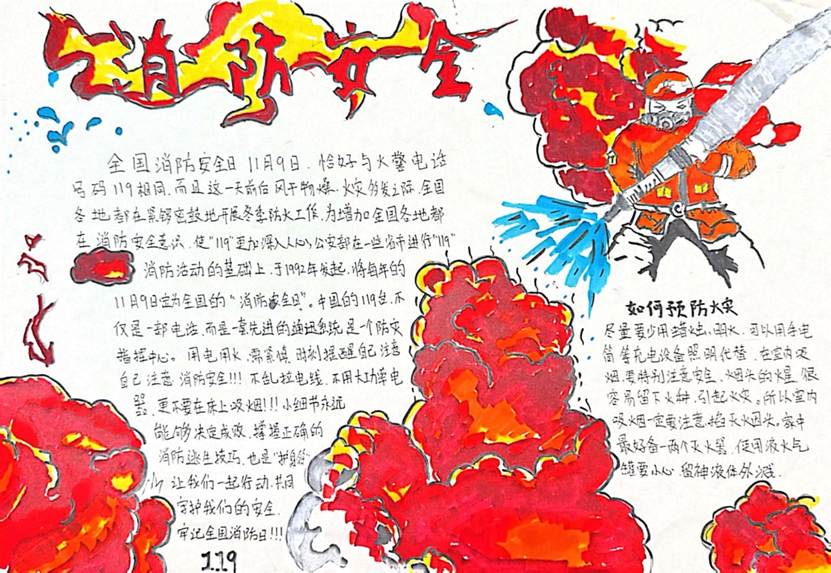 消防安全
全国消防安全日11月9日.恰好与火警电话
号码119相同,而且这一天前后风干物燥、火灾多发之际,全国
各地都在紧锣密鼓地开展冬季防火工作.为增加全国各地都
在消防安全意识,使"119"更加深入人心,公安部在一些省市进行"119"
消防活动的基础上,于1992年发起,将每年的
11月9日定为全国的"消防安全日"。中国的119台,不
仅是一部电话,而是一套先进的通讯系统是一个防灾
指挥中心。用电用火,需谨慎,时刻提醒自己注意
自己注意消防安全!!!不乱拉电线,不用大功率电
器,更不要在床上吸烟!!!小细节永远
能够决定成败,掌握正确的
消防逃生技巧,也是"护身符"
让我们一起行动,共同
守护我们的安全.
牢记全国消防日!!!
119
如何预防火灾
尽量要少用蜡烛,明火,可以用手电
筒等充电设备照明代替,在室内吸
烟,要特别注意安全,烟头的火星,很
容易留下火种,引起火灾,所以室内
吸烟一定要注意掐灭火因头,家中
最好备一两个灭火器,使用液火气
罐要小心,留神液体外溅.